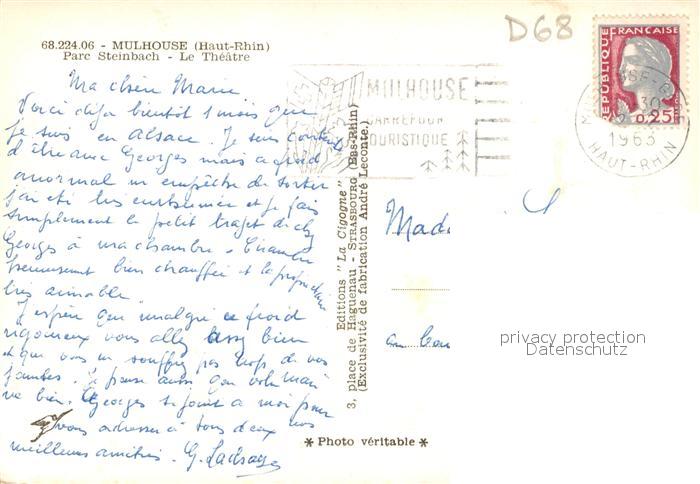 D68
68.224.06 - MULHOUSE (Haut-Rhin)
Parc Steinbach - Le Théâtre
Ma chère Marie
Voici déja bientôt 1 mois que
je suis en Alsace. Je suis contente
d'être avec Georges mais ce froid
anormal m'empêche de sortir
j'ai été très enrhumée et je fais
simplement le petit trajet de chez
Georges à ma chambre. Chambre
heureusement bien chauffée et la propriétaire
très aimable
J'espère que malgré ce froid
rigoureux vous allez assez bien
et que vous ne souffrez pas trop de vos
jambes. Je pense aussi que votre mari
va bien. Georges se joint à moi pour
vous adresser à tous deux nos
meilleurs amitiés. G.
MULHOUSE
CARREFOUR
TOURISTIQUE
REPUBLIQUE FRANÇAISE
0,25
1963
HAUT-RHIN
Editions "La Cigogne"
3, place de Haguenau - STRASBOURG (Bas-Rhin)
(Exclusivité de fabrication André Leconte.)
Mad
au
privacy protection
Datenschutz
* Photo véritable *